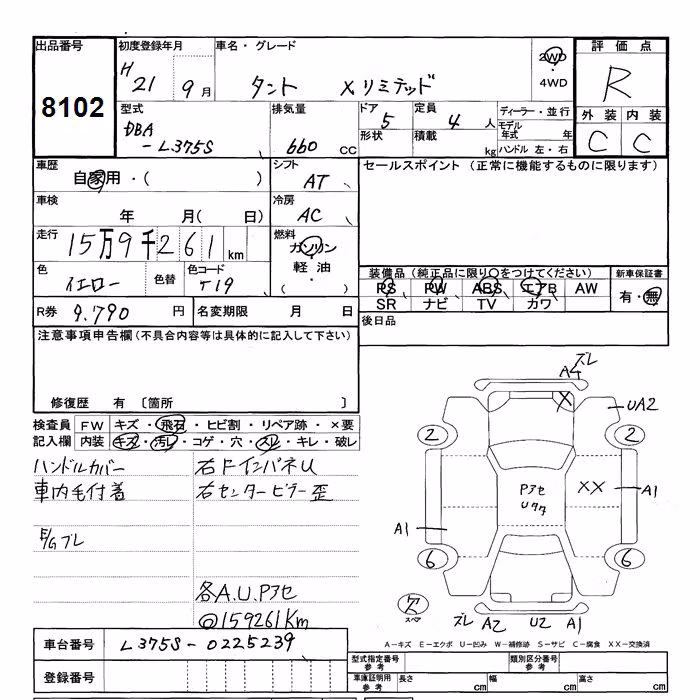 出品番号 初度登録年月 車名・グレード 2WD ・ 4WD 評価点
8102 H 21 9月 タント Xリミテッド R
型式 排気量 ドア 定員 ディーラー・並行 外装 内装
DBA - L375S 660 CC 5 4 人 モデル年式 年 C C
形状 積載 kg ハンドル 左・右
車歴 シフト セールスポイント (正常に機能するものに限ります)
自家用・( ) AT
車検 冷房
年 月( 日) AC
走行 燃料
15万9千261 km ガソリン 軽油 ・ ( )
色 色替 色コード 装備品(純正品に限り○をつけてください) 新車保証書
イエロー T19 PS PW ABS エアB AW 有・無
SR ナビ TV カワ
R券 9.790 円 名変期限 月 日 後日品
注意事項申告欄(不具合内容等は具体的に記入して下さい)
修復歴 有 〔箇所 〕
検査員 FW キズ・飛石・ヒビ割・リペア跡・×要
記入欄 内装 キズ・汚レ・コゲ・穴・スレ・キレ・破レ
ハンドルカバー 右FインパネU
車内毛付着 右センターピラー歪
E/Gブレ
各A.U.Pアセ
@159261Km
ズレ
A4
X UA2
2 2
Pアセ XX A1
Uタタ
A1
6 6
ズレ A2 U2 A1
スペア
A-キズ E-エクボ U-凹み W-補修跡 S-サビ C-腐食 XX-交換済
車台番号 L375S-0225239
型式指定番号 参考 類別区分番号 参考
登録番号 車庫証明用 参考 長さ cm 幅 cm 高さ cm